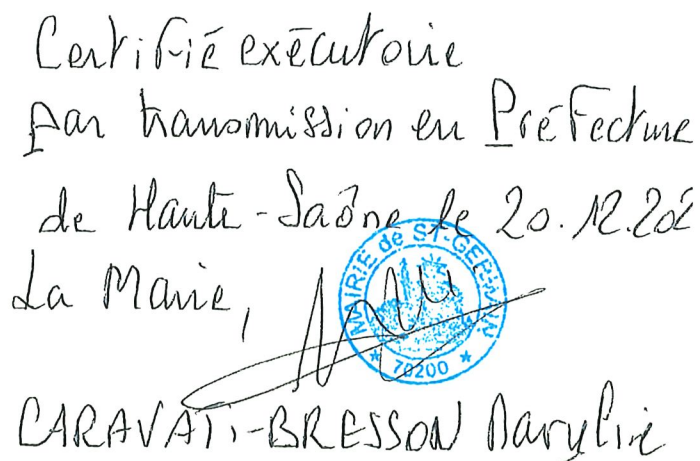 Certifié exécutoire
par transmission en Préfecture
de Haute-Saône le 20.12.202
La Maire,
MAIRIE de ST-GERMAIN
* 70200 *
CARAVATI-BRESSON Marylie